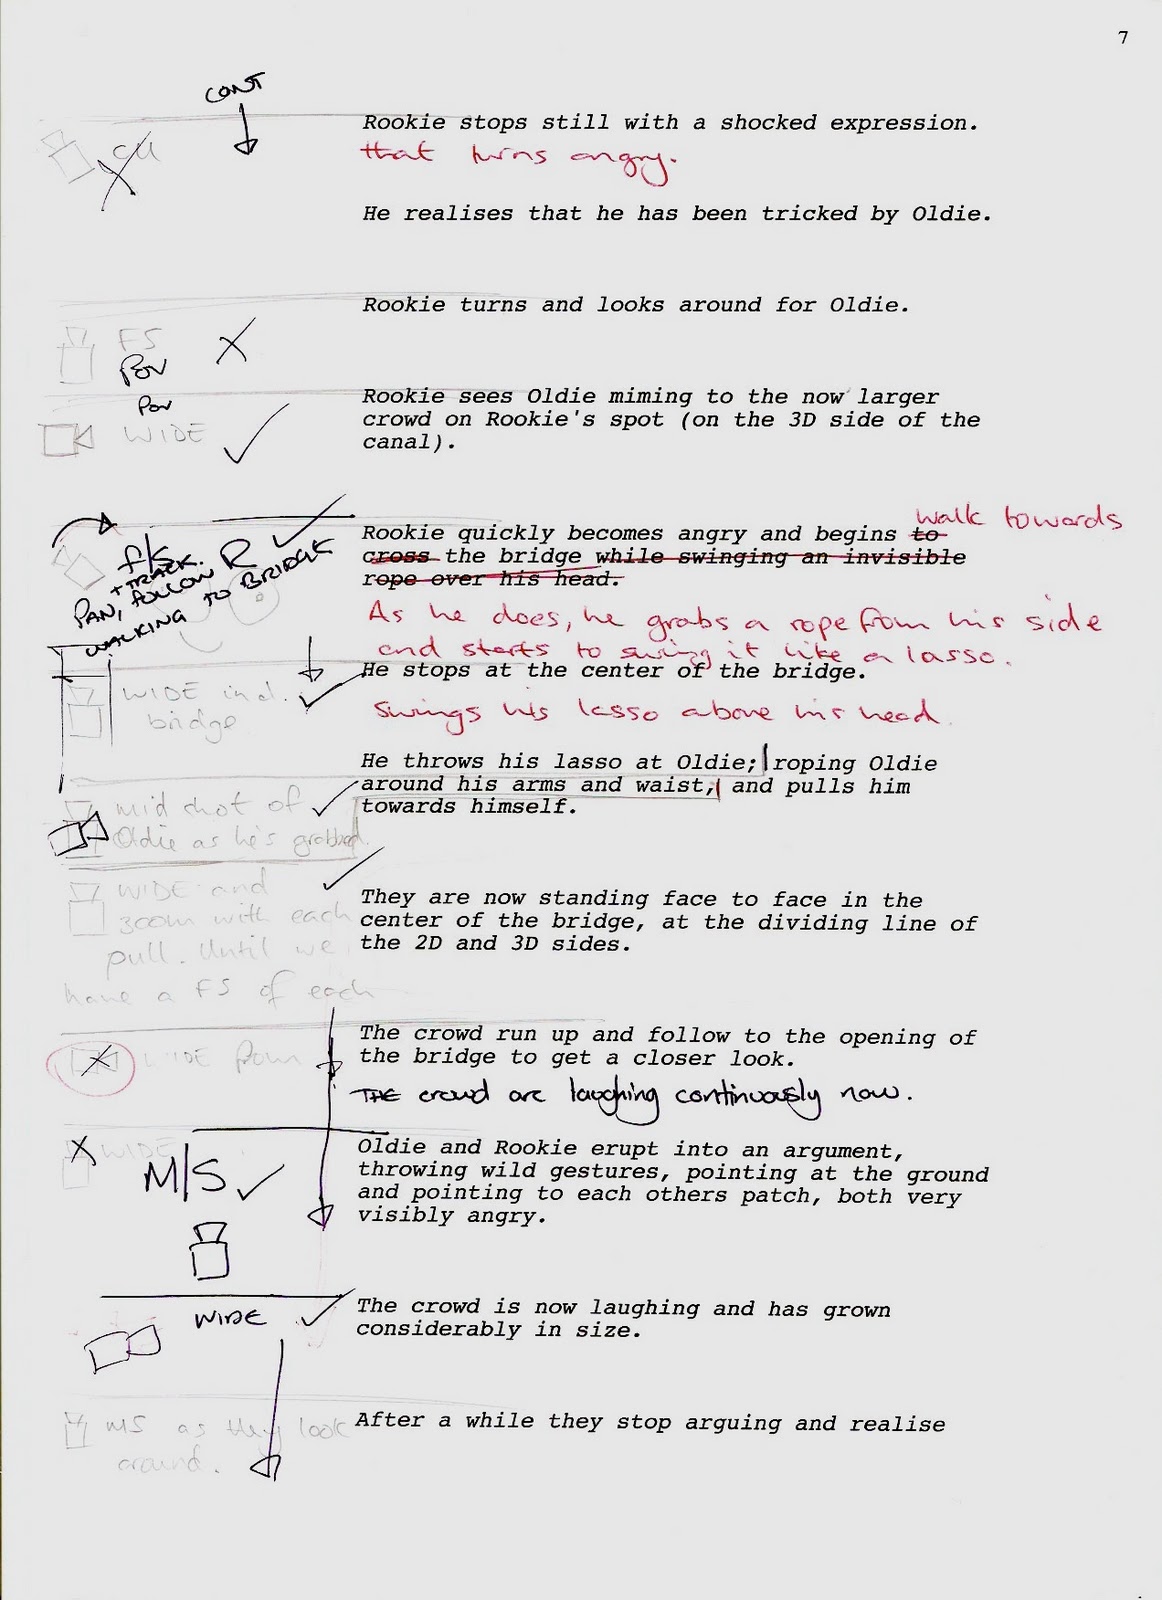 7
CONT
Rookie stops still with a shocked expression.
CU
that turns angry.
He realises that he has been tricked by Oldie.
Rookie turns and looks around for Oldie.
FS
POV
Rookie sees Oldie miming to the now larger
POV
crowd on Rookie's spot (on the 3D side of the
WIDE
canal).
walk towards
Rookie quickly becomes angry and begins to
cross the bridge while swinging an invisible
rope over his head.
f/s.
+ TRACK.
PAN, FOLLOW R
WALKING TO BRIDGE
As he does, he grabs a rope from his side
and starts to swing it like a lasso.
He stops at the center of the bridge.
WIDE incl.
bridge
Swings his lasso above his head.
He throws his lasso at Oldie; roping Oldie
around his arms and waist, and pulls him
towards himself.
mid shot of
Oldie as he's grabbed.
WIDE and
zoom with each
pull. Until we
have a FS of each
They are now standing face to face in the
center of the bridge, at the dividing line of
the 2D and 3D sides.
The crowd run up and follow to the opening of
the bridge to get a closer look.
WIDE from
THE crowd are laughing continuously now.
WIDE
M/S
Oldie and Rookie erupt into an argument,
throwing wild gestures, pointing at the ground
and pointing to each others patch, both very
visibly angry.
WIDE
The crowd is now laughing and has grown
considerably in size.
MS as they look
around.
After a while they stop arguing and realise